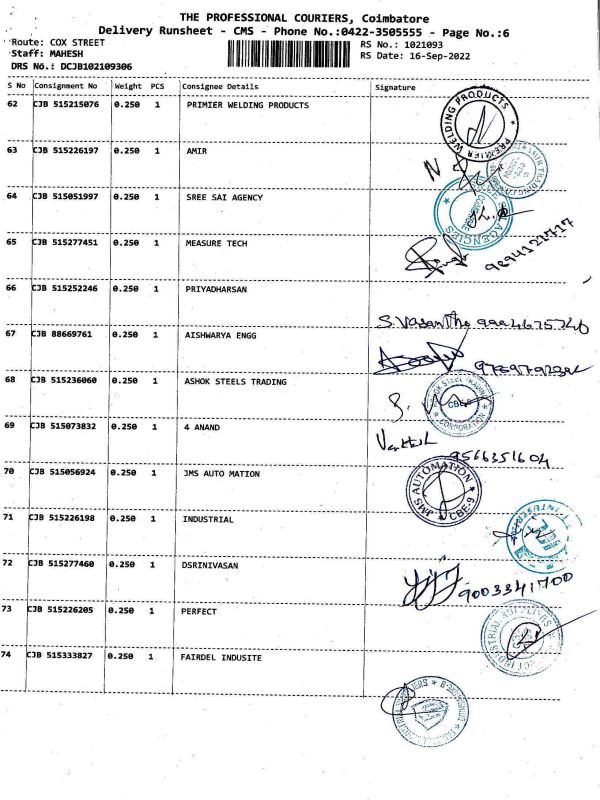 THE PROFESSIONAL COURIERS, Coimbatore
Delivery Runsheet - CMS - Phone No.:0422-3505555 - Page No.:6
Route: COX STREET
RS No.: 1021093
Staff: MAHESH
RS Date: 16-Sep-2022
DRS No.: DCJB102109306
S No Consignment No Weight PCS Consignee Details Signature
62 CJB 515215076 0.250 1 PRIMIER WELDING PRODUCTS
PREMIER WELDING PRODUCTS
63 CJB 515226197 0.250 1 AMIR
64 CJB 515051997 0.250 1 SREE SAI AGENCY
AGENCIES
65 CJB 515277451 0.250 1 MEASURE TECH
66 CJB 515252246 0.250 1 PRIYADHARSAN
S. Vasantha 9994675746
67 CJB 88669761 0.250 1 AISHWARYA ENGG
68 CJB 515236060 0.250 1 ASHOK STEELS TRADING
CORPORATION
69 CJB 515073832 0.250 1 4 ANAND
9566351604
70 CJB 515056924 0.250 1 JMS AUTO MATION
JMS AUTOMATION
CBE-9
71 CJB 515226198 0.250 1 INDUSTRIAL
72 CJB 515277460 0.250 1 DSRINIVASAN
9003341700
73 CJB 515226205 0.250 1 PERFECT
74 CJB 515333827 0.250 1 FAIRDEL INDUSITE